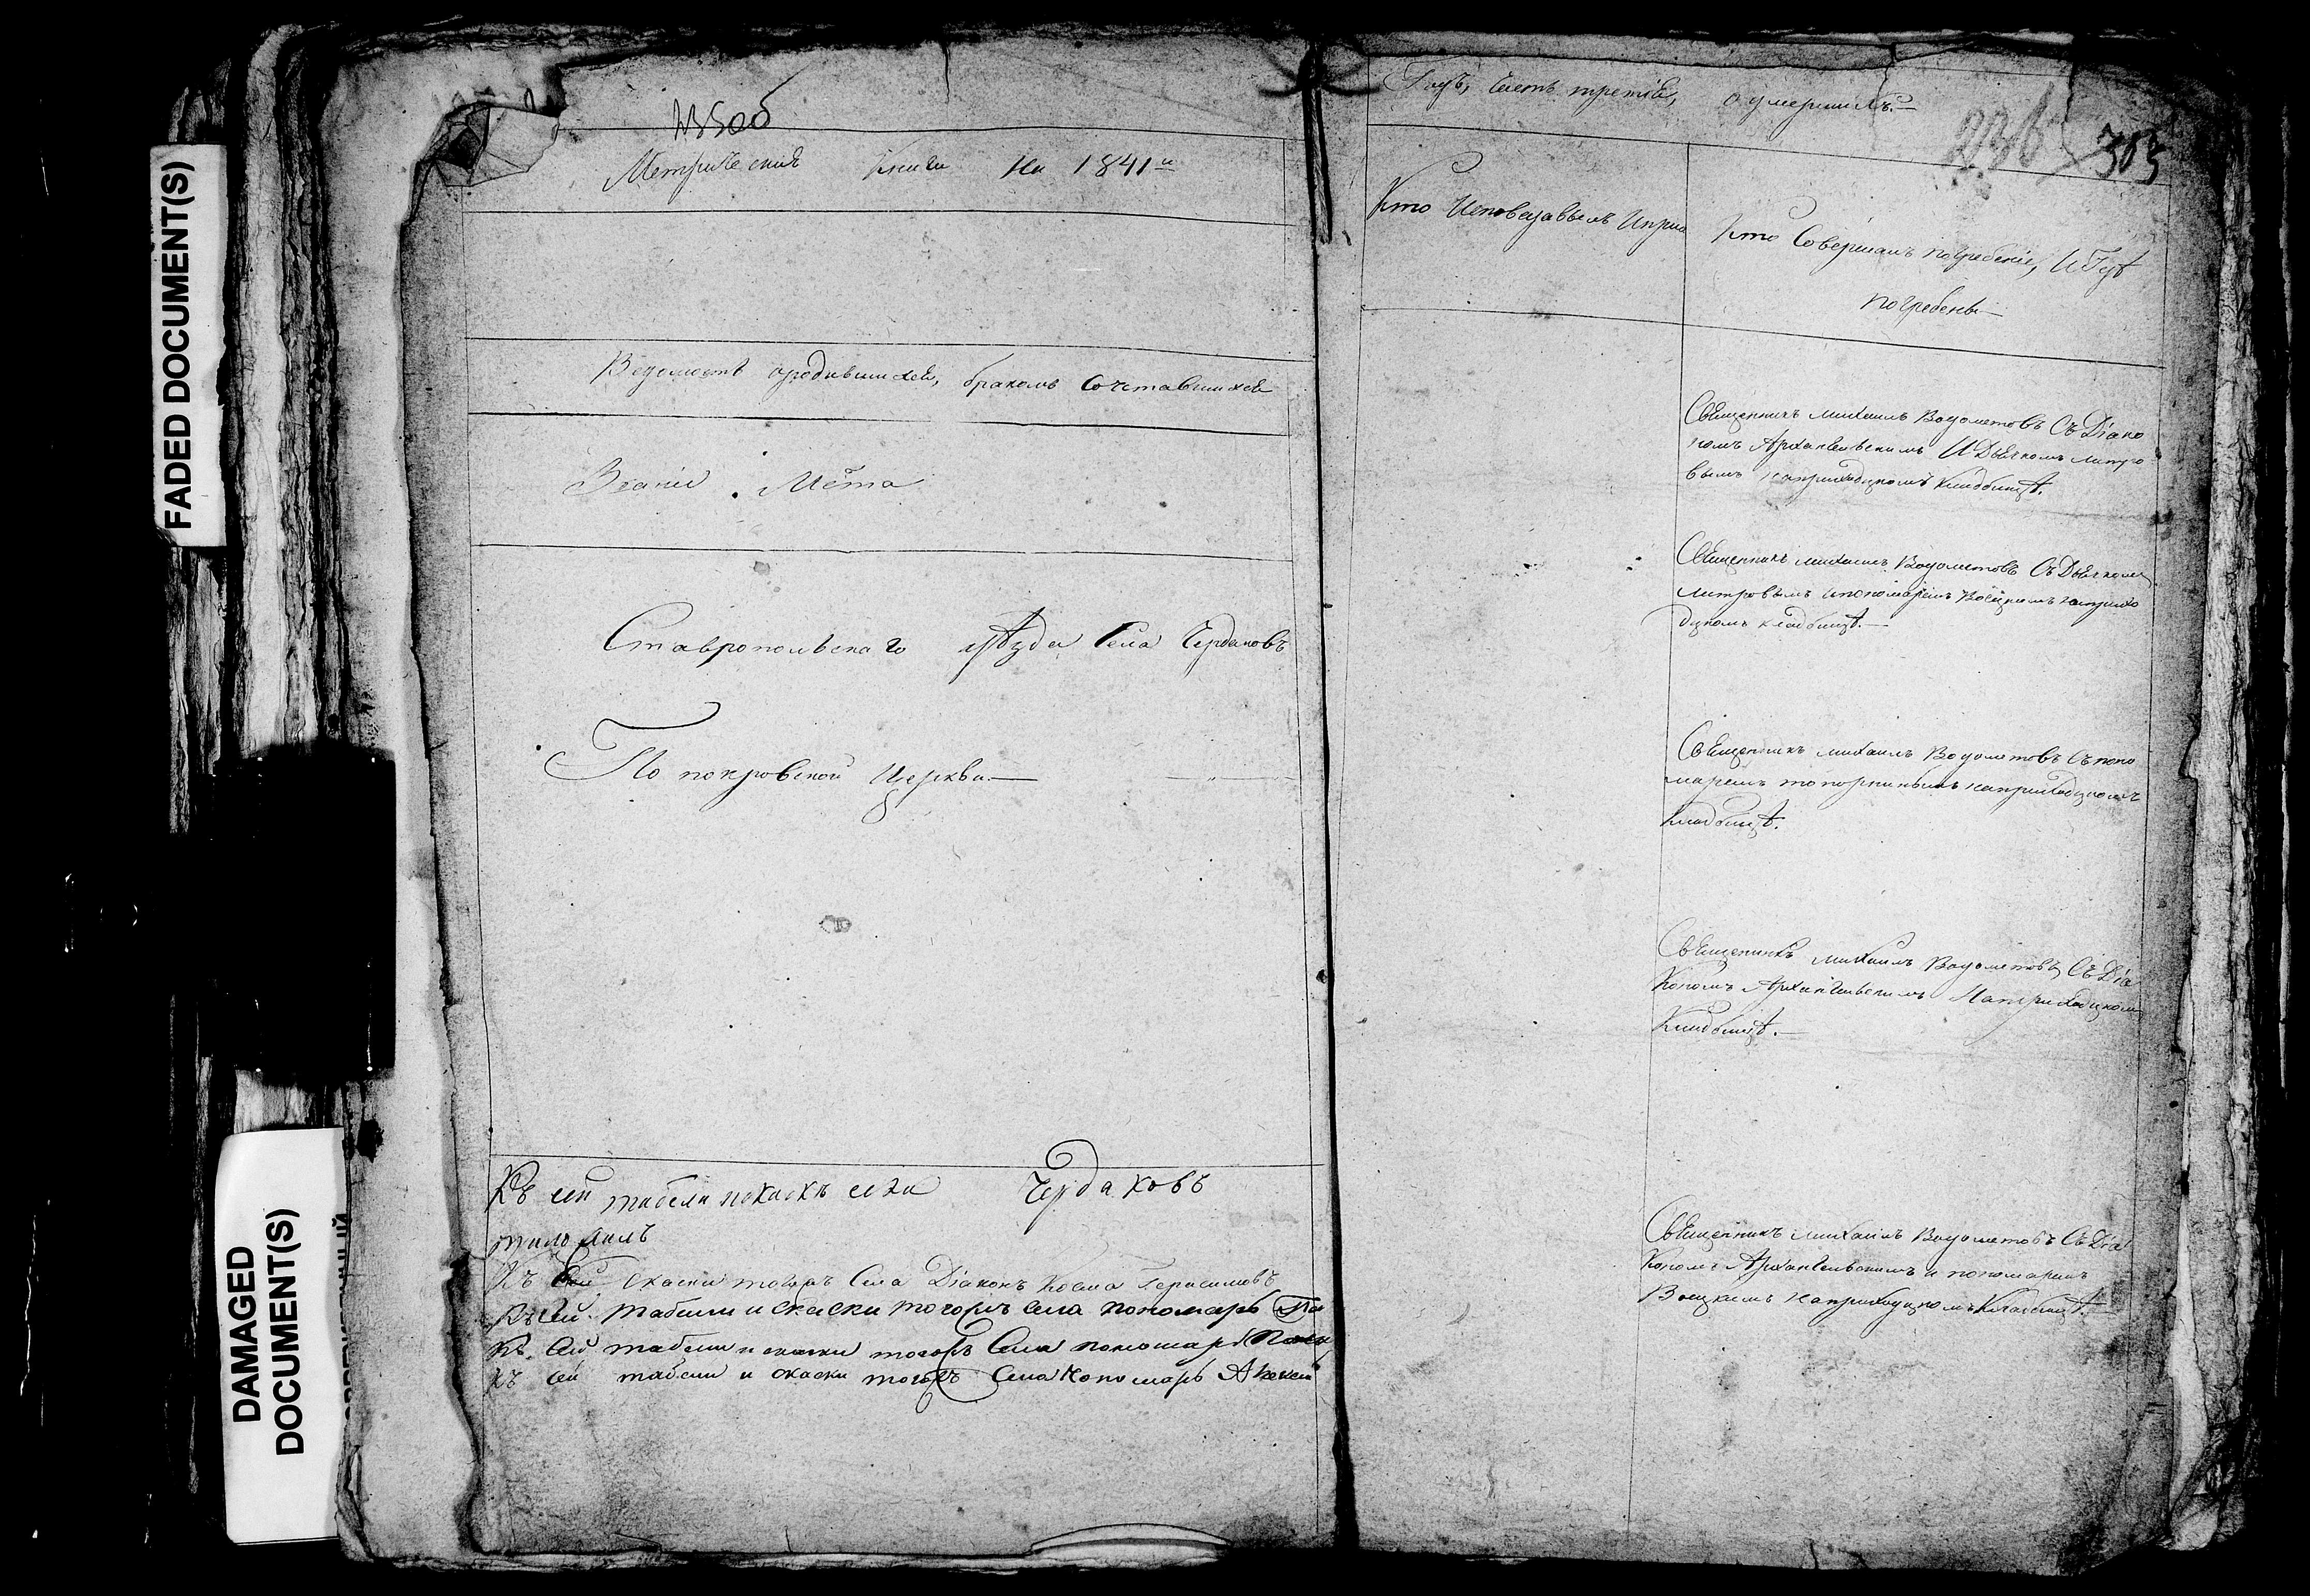 FADED DOCUMENT(S)
DAMAGED
DOCUMENT(S)
235об
Метрической Книги На 1841й
Ведомость ородившихся, бракомъ Сочетавшихся
Званіе Места
Ставропольскаго уѣзда Села Чердаковъ
По покровской Церкви
Къ сей табели села Чердаковъ
Къ сей скаски тогожъ Села Діаконъ Косма Герасимовъ
Къ сей табели и скаски тогожъ села пономарь
Къ сей табели и скаски тогожъ Села пономарь
Къ сей табели и скаски тогожъ Села пономарь Алексей
Годъ, Часть третія, оумершихъ.
236 303
Кто Исповедавалъ Ипри
Кто Совершалъ погребеніе, И Гдѣ
погребены
Священникъ Михаилъ Водолетовъ Съ Діако
номъ Архангельскимъ И Дьячкомъ Митро
вымъ наприходцкомъ кладбищѣ.
Священникъ Михаилъ Водолетовъ Съ Дьячкомъ
Митровымъ ипономаремъ наприхо
дцкомъ кладбищѣ.
Священникъ Михаилъ Водолетовъ Съ поно
маремъ топоркинымъ наприходцкомъ
кладбищѣ.
Священникъ Михаилъ Водолетовъ Съ Діа
кономъ Архангельскимъ Наприходцкомъ
Кладбищѣ.
Священникъ Михаилъ Водолетовъ Съ Діа
кономъ Архангельскимъ и пономаремъ
наприходцкомъ Кладбищѣ.